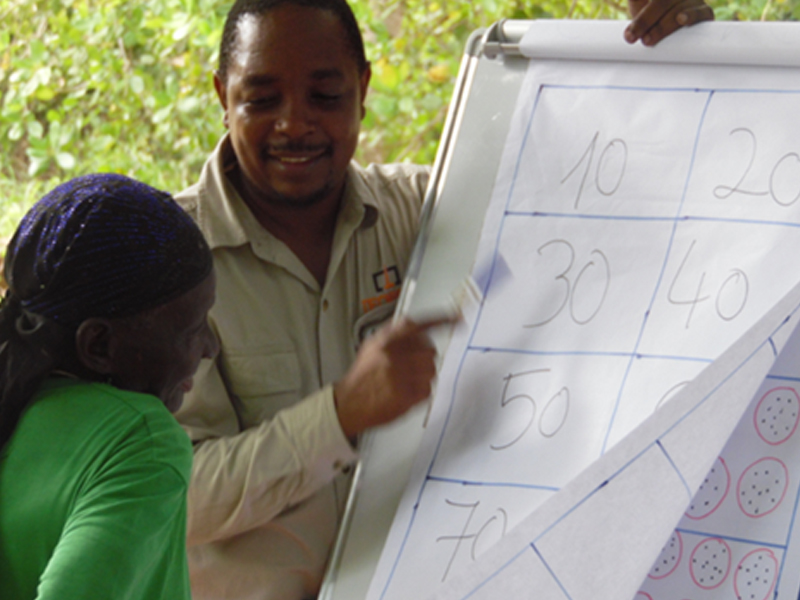 10 20
30 40
50
70